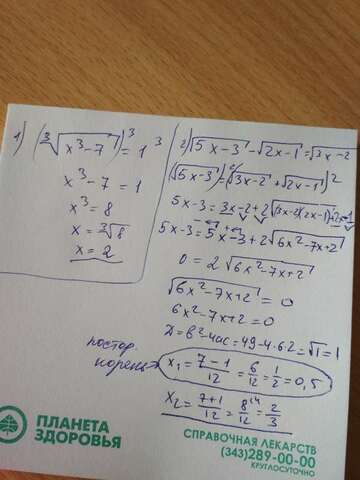 1) (∛(x³-7))³ = 1³
x³-7 = 1
x³ = 8
x = ∛8
x = 2
2) √(5x-3) - √(2x-1) = √(3x-2)
(√(5x-3))² = (√(3x-2) + √(2x-1))²
5x-3 = 3x-2+2√((3x-2)(2x-1))+2x-1
5x-3 = 5x-3+2√(6x²-7x+2)
0 = 2√(6x²-7x+2)
√(6x²-7x+2) = 0
6x²-7x+2 = 0
D = b²-4ac = 49-4·6·2 = √1 = 1
x₁ = (7-1)/12 = 6/12 = 1/2 = 0,5
постор. корень
x₂ = (7+1)/12 = 8/12 = 2/3
ПЛАНЕТА
ЗДОРОВЬЯ
СПРАВОЧНАЯ ЛЕКАРСТВ
(343)289-00-00
КРУГЛОСУТОЧНО